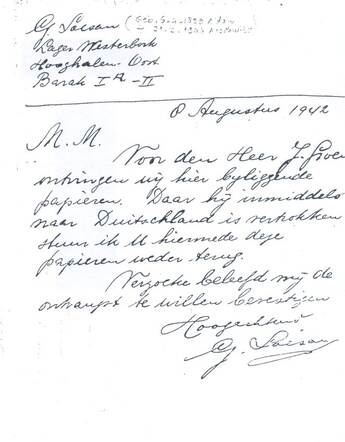 G. Loisan (Geb. 1899 A'dam
1943 Auschwitz)
Lager Westerbork
Hooghalen-Oost
Barak I A - II
8 Augustus 1942
M.M.
Voor den Heer J. Groen
ontvingen wij hier bijliggende
papieren. Daar hij inmiddels
naar Duitschland is vertrokken
stuur ik U hiermede deze
papieren weder terug.
Verzoeke beleefd mij de
ontvangst te willen bevestigen
Hoogachtend
G. Loisan